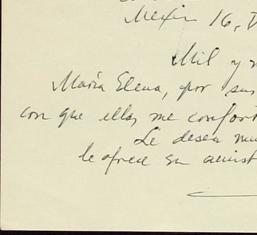 Mexico 16, D
Mil y m
María Elena, por sus
con que ellas me confort
Le desea mu
le ofrece su amist